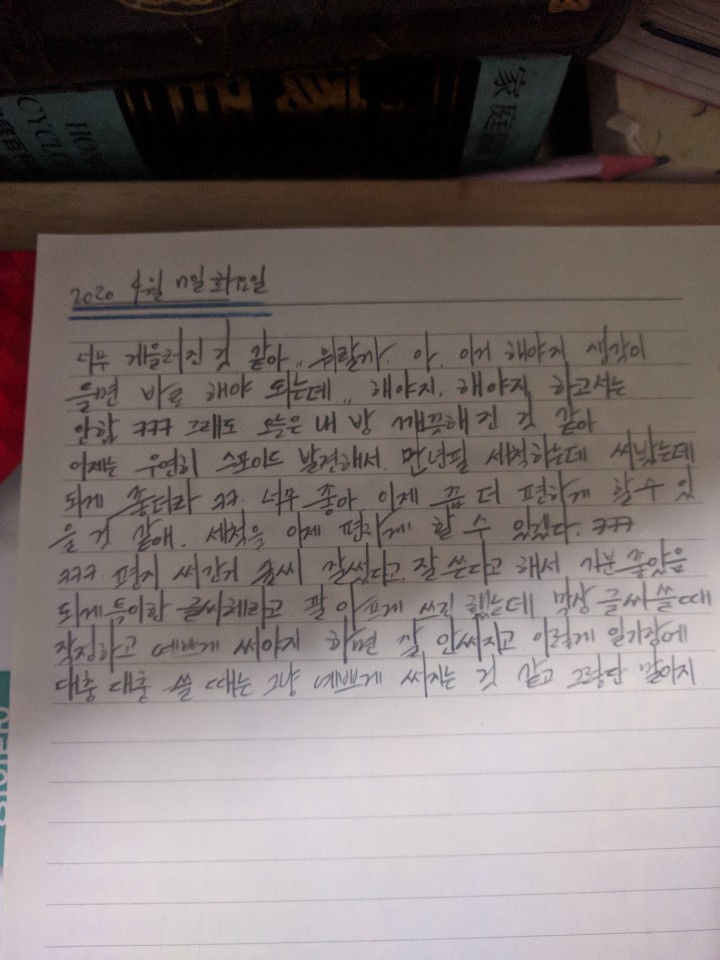 家庭
HOM
CYCLO
2020 4월 17일 화요일
너무 게을러진 것 같아.. 뭐랄까. 아. 이거 해야지 생각이
들면 바로 해야 되는데.. 해야지. 해야지 하고서는
안함 ㅋㅋㅋ 그래도 오늘은 내 방 깨끗해진 것 같아
어제는 우연히 스포이드 발견해서. 만년필 세척하는데 써봤는데
되게 좋더라 ㅋㅋ. 너무 좋아 이제 좀 더 편하게 할 수 있
을 것 같애. 세척을 이제 편하게 할 수 있겠다. ㅋㅋㅋ
ㅋㅋㅋ. 편지 써간거 글씨 잘썼다고. 잘 쓴다고 해서 기분 좋았음
되게 특이한 글씨체라고. 팔 아프게 쓰긴 했는데 막상 글씨 쓸때
작정하고 예쁘게 써야지 하면 잘 안써지고 이렇게 일기장에
대충 대충 쓸 때는 그냥 예쁘게 써지는 것 같고 그렇단 말이지